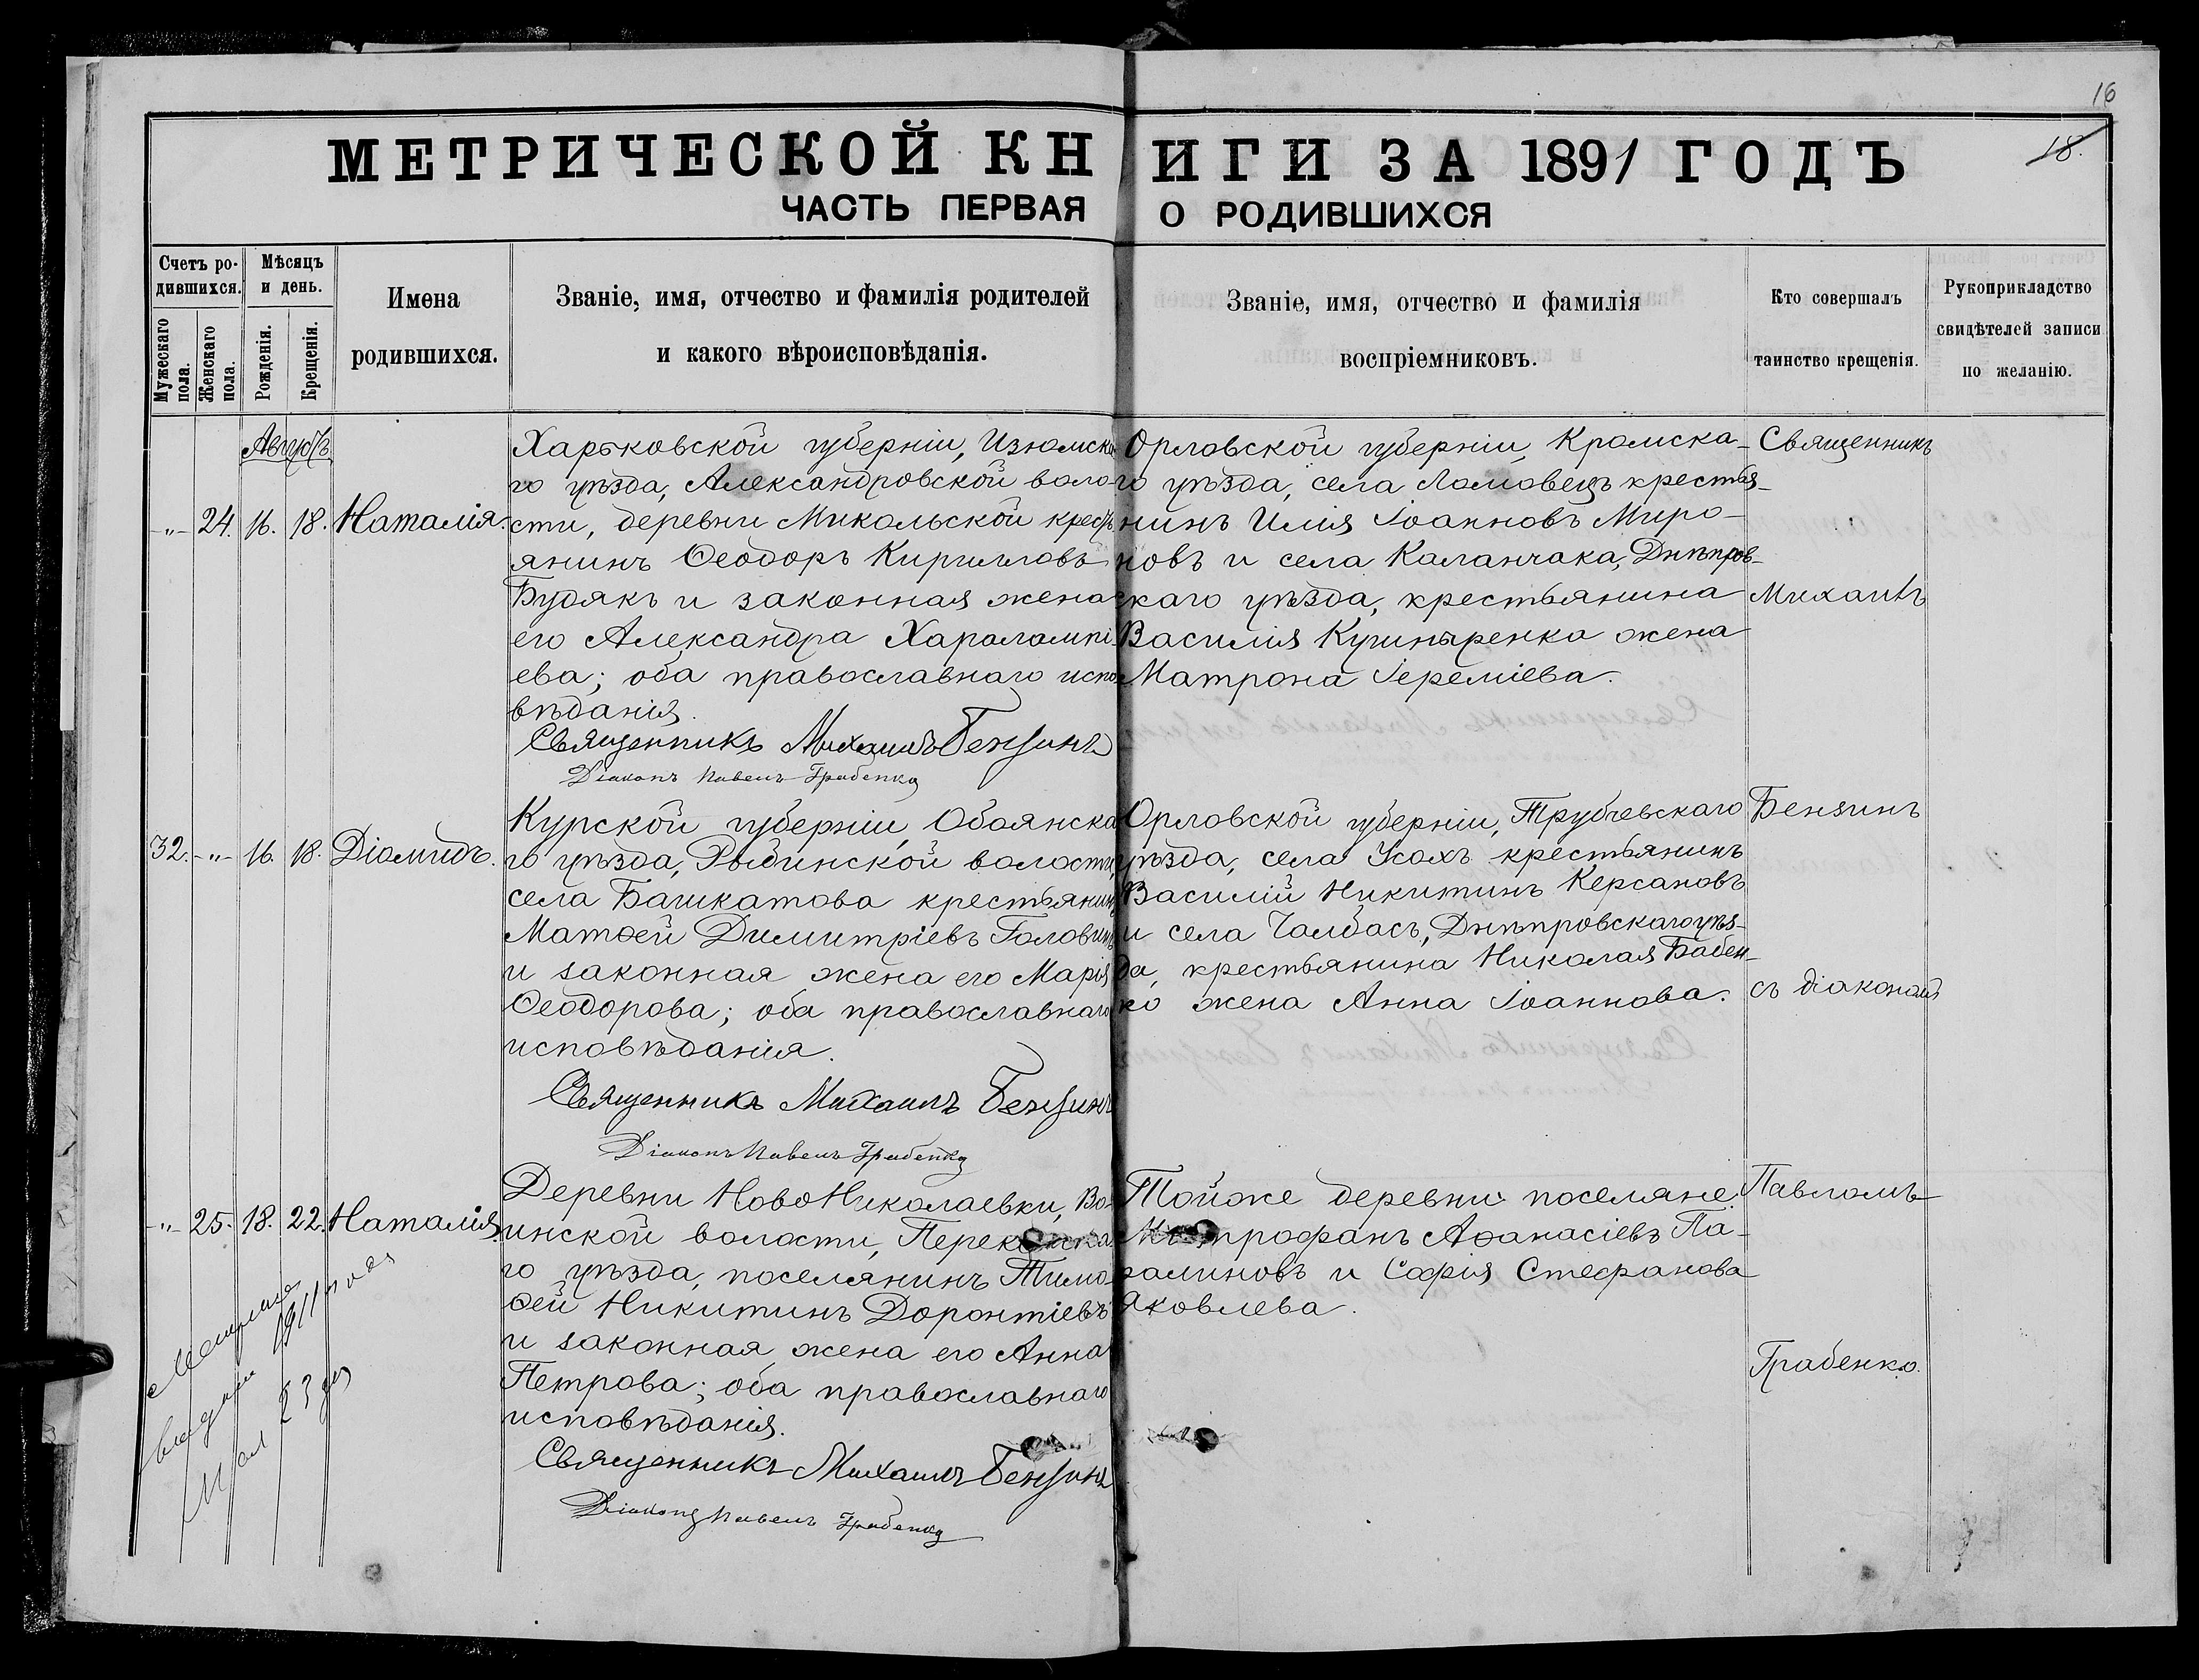 16
МЕТРИЧЕСКОЙ КНИГИ ЗА 1891 ГОДЪ
18.
ЧАСТЬ ПЕРВАЯ О РОДИВШИХСЯ
Счетъ ро-
дившихся.
Мужескаго пола.
Женскаго пола.
Мѣсяцъ
и день.
Рожденія.
Крещенія.
Имена
родившихся.
Званіе, имя, отчество и фамилія родителей
и какого вѣроисповѣданія.
Званіе, имя, отчество и фамилія
воспріемниковъ.
Кто совершалъ
таинство крещенія.
Рукоприкладство
свидѣтелей записи
по желанію.
Августъ
-"- 24. 16. 18. Наталія.
Харьковской губерніи, Изюмска-
го уѣзда, Александровской воло-
сти, деревни Микольской кресть
янинъ Ѳеодоръ Кирилловъ
Будякъ и законная жена
его Александра Харалампі-
ева; оба православнаго испо-
вѣданія.
Священникъ Михаилъ Бензинъ
Діаконъ Павелъ Грабенко
Орловской губерніи, Кромска-
го уѣзда, села Ломовецъ крестья-
нинъ Илія Іоанновъ Миро-
новъ и села Каланчака, Днѣпров-
скаго уѣзда, крестьянина
Василія Кушныренка жена
Матрона Іереміева.
Священникъ
Михаилъ
32. -"- 16. 18. Діомидъ.
Курской губерніи, Обоянска
го уѣзда, Рыбинской волости,
села Башкатова крестьянинъ
Матѳей Димитріевъ Головинъ
и законная жена его Марія
Ѳеодорова; оба православнаго
исповѣданія.
Священникъ Михаилъ Бензинъ
Діаконъ Павелъ Грабенко
Орловской губерніи, Трубчевскаго
уѣзда, села Усохъ крестьянинъ
Василій Никитинъ Керсановъ
и села Чалбасъ, Днѣпровскаго уѣз-
да, крестьянина Николая Бабен-
ко жена Анна Іоаннова.
Бензинъ
съ діакономъ
-"- 25. 18. 22. Наталія.
Деревни НовоНиколаевки, Во-
инской волости, Перекопска
го уѣзда, поселянинъ Тимо-
ѳей Никитинъ Доронтіевъ
и законная жена его Анна
Петрова; оба православнаго
исповѣданія.
Священникъ Михаилъ Бензинъ
Діаконъ Павелъ Грабенко
Тойже деревни поселяне:
Митрофанъ Аѳанасіевъ Па-
ралиновъ и Софія Стефанова
Яковлева.
Павломъ
Грабенко.
Метрика
выдана 1911 года
Мая 23 дня